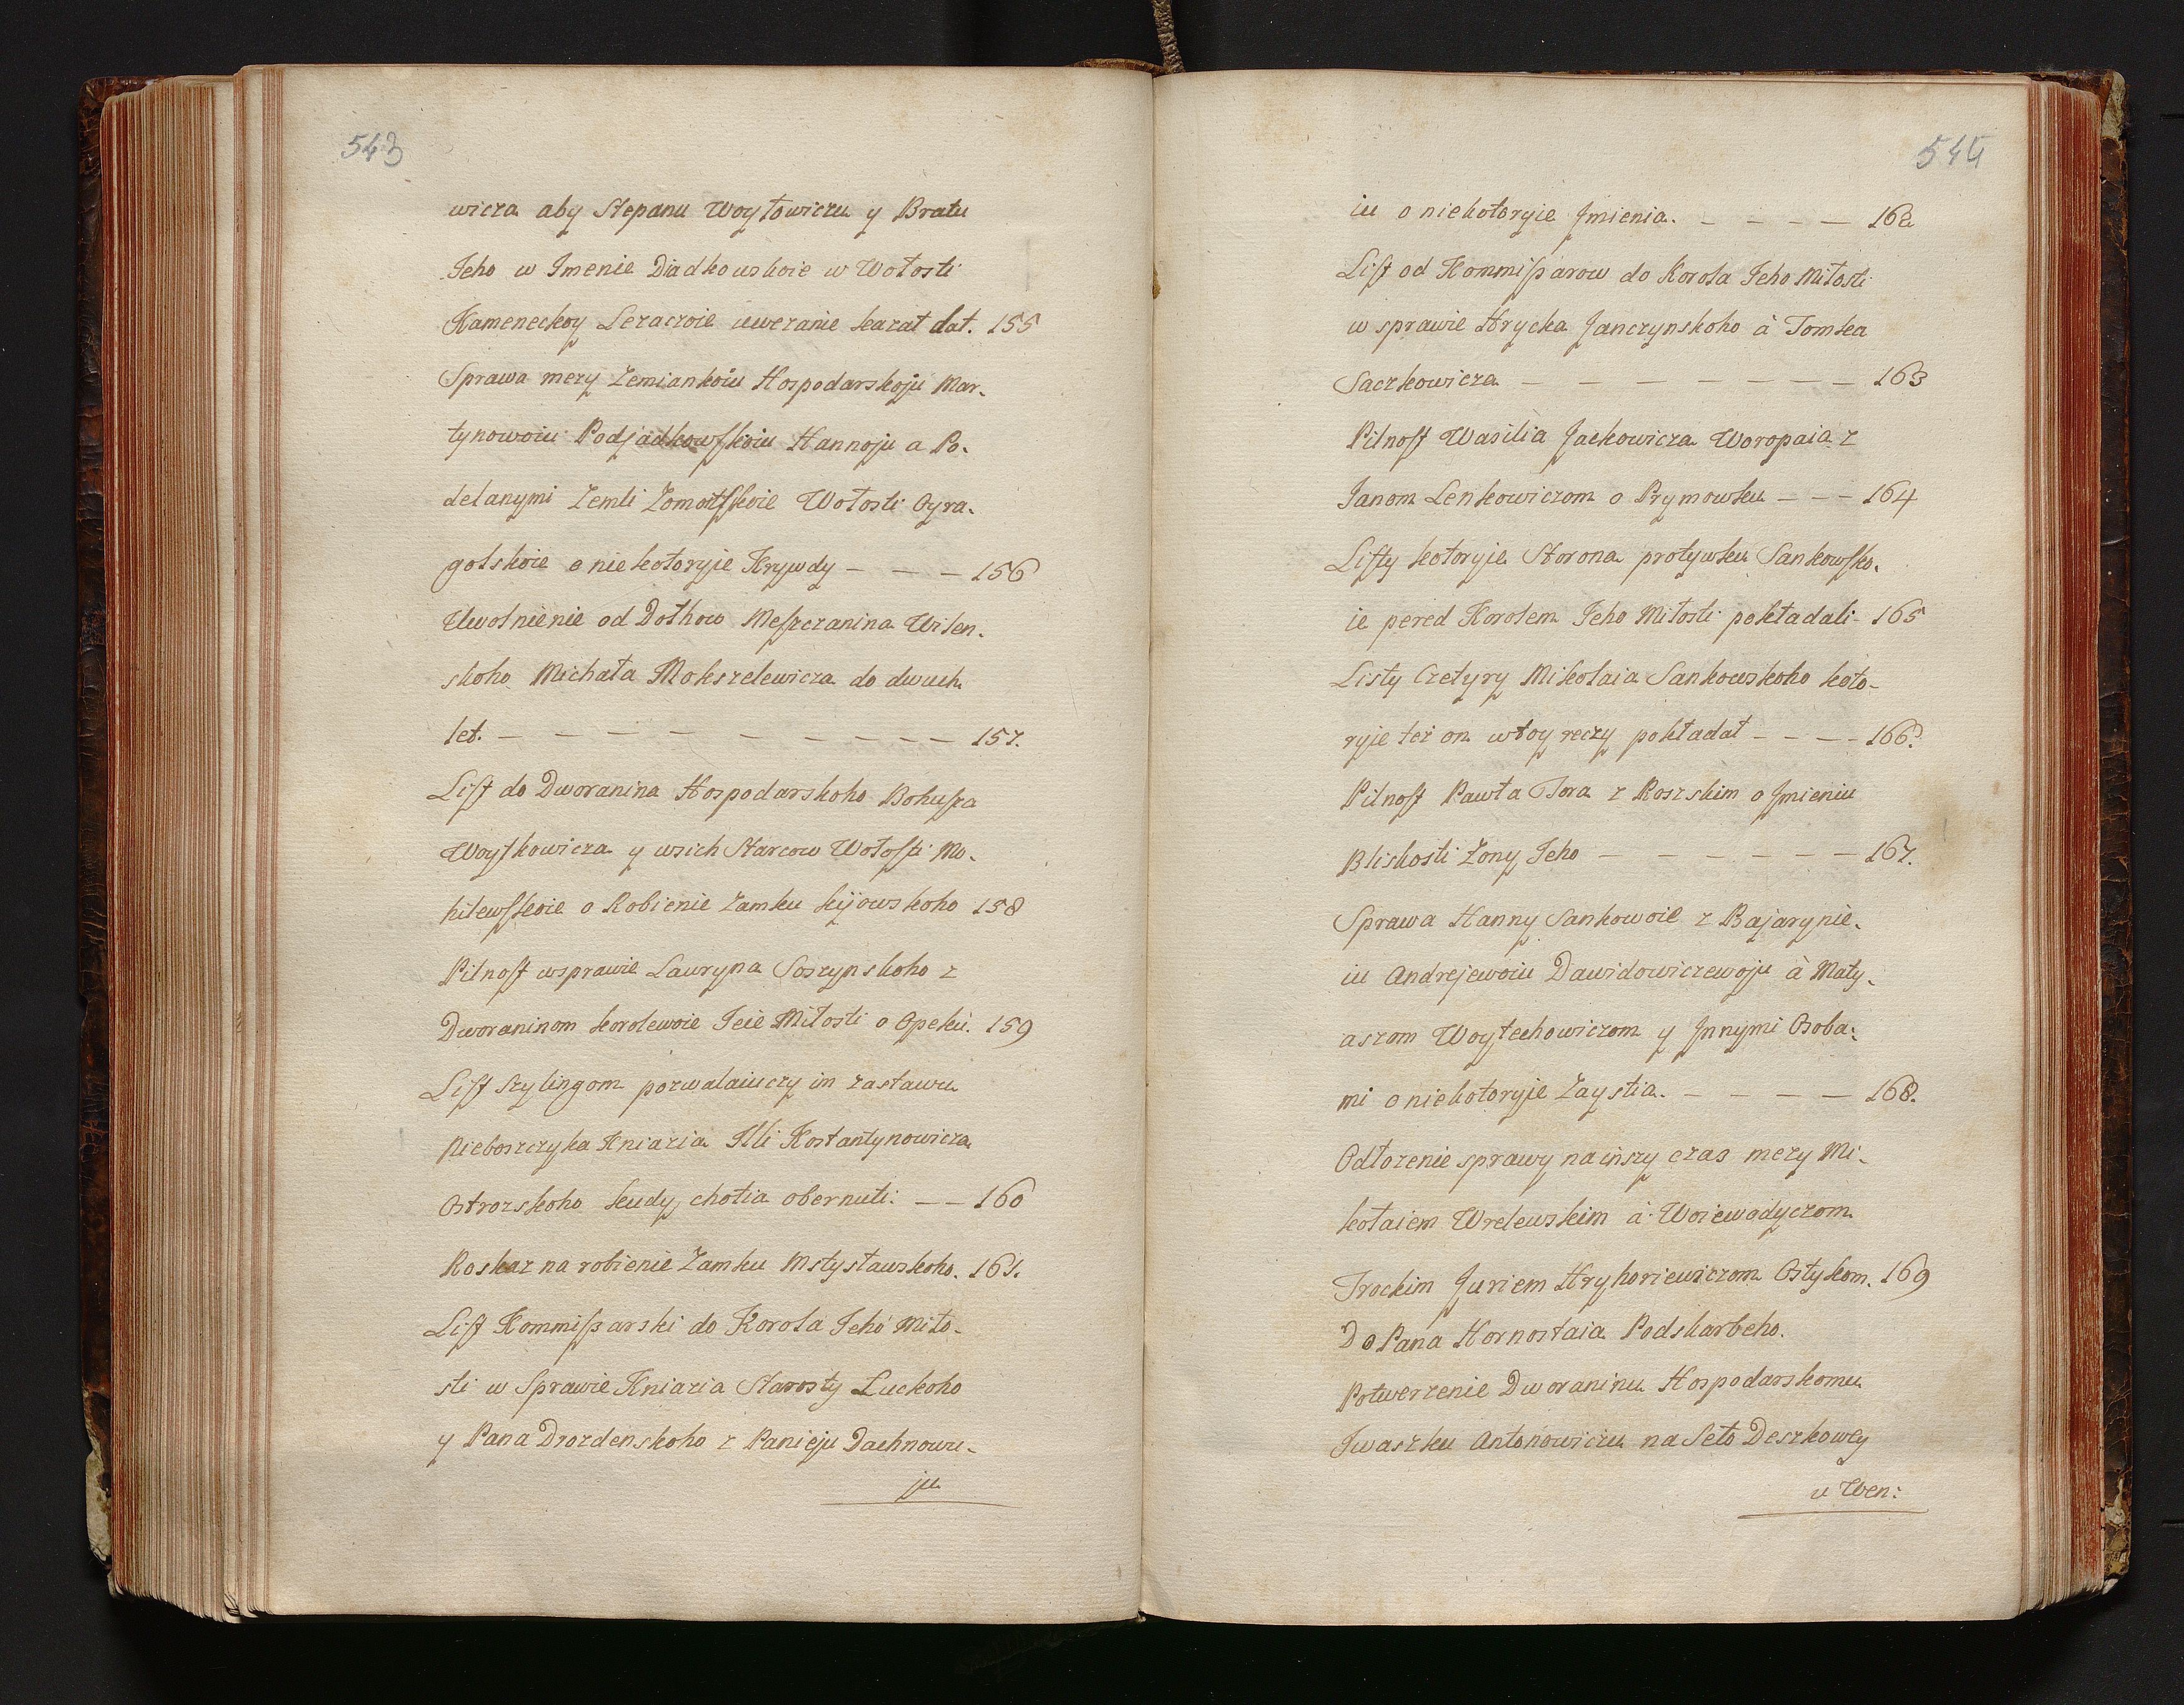 543
wicza aby Stepanu Woytowiczu y Bratu
Jeho w Imenie Diadkowskoie w Wołosti
Kameneckoy Lezaczoie uwezanie kazał dat. 155
Sprawa mezy Zemiankoiu Hospodarskoju Mar-
tynowoiu Podjadkowskoiu Hannoju a Po-
delanymi Zemli Zomoitskoie Wołosti Oyra-
golskoie o niekotoryie Krywdy - - - 156
Uwolnienie od Dołhow Meszczanina Wilen-
skoho Michała Mokszelewicza do dwuch
let. - - - - - - - - - - 157.
List do Dworanina Hospodarskoho Bohusza
Woytkowicza y wsich Starcow Wołosti Mo-
hilewskoie o Robienie Zamku kijowskoho 158
Pilnost wsprawie Lauryna Soszynskoho z
Dworaninom korolewoie Jeie Miłosti o Opeku. 159
List Szylingom pozwalaiuczy im zastawu
Nieboszczyka Kniazia Illi Kostantynowicza
Ostrozskoho kudy, chotia obernuti: - - 160
Roskaz na robienie Zamku Mstysławskoho. 161.
List Kommissarski do Korola Jeho Miło-
sti w Sprawie Kniazia Starosty Luckoho
y Pana Drozdenskoho z Panieju Dachnowu-
ju
544
iu o niekotoryie Jmienia. - - - - 162
List od Kommissarow do Korola Jeho Miłosti
w sprawie Hrycka Janczynskoho à Tomka
Saczkowicza - - - - - - - - 163
Pilnost Wasilia Jackowicza Woropaia z
Janom Lenkowiczom o Prymowku - - - 164
Listy kotoryie Storona protywku Sankowsko-
ie pered Korolem Jeho Miłosti pokładali - 165
Listy Czetyry Mikolaia Sankowskoho koto-
ryie też on wtoy reczy pokładał - - - - 166.
Pilnost Pawła Tora z Roszskim o Jmieniu
Bliskosti Zony Jeho - - - - - - 167.
Sprawa Hanny Sankowoie z Bajarynie-
iu Andrejewoiu Dawidowiczewoju à Maty-
aszom Woytechowiczom y Jnnymi Osoba-
mi o niekotoryje Zaystia. - - - - 168.
Odłożenie sprawy na inszy czas mezy Mi-
kołaiem Wrelewskim à Woiewodyczom
Trockim Juriem Hryhoriewiczom Ostykom. 169
Do Pana Hornostaia Podskarbeho.
Potwerzenie Dworaninu Hospodarskomu
Jwaszku Antonowiczu na Seło Deszkowcy
u Wen: